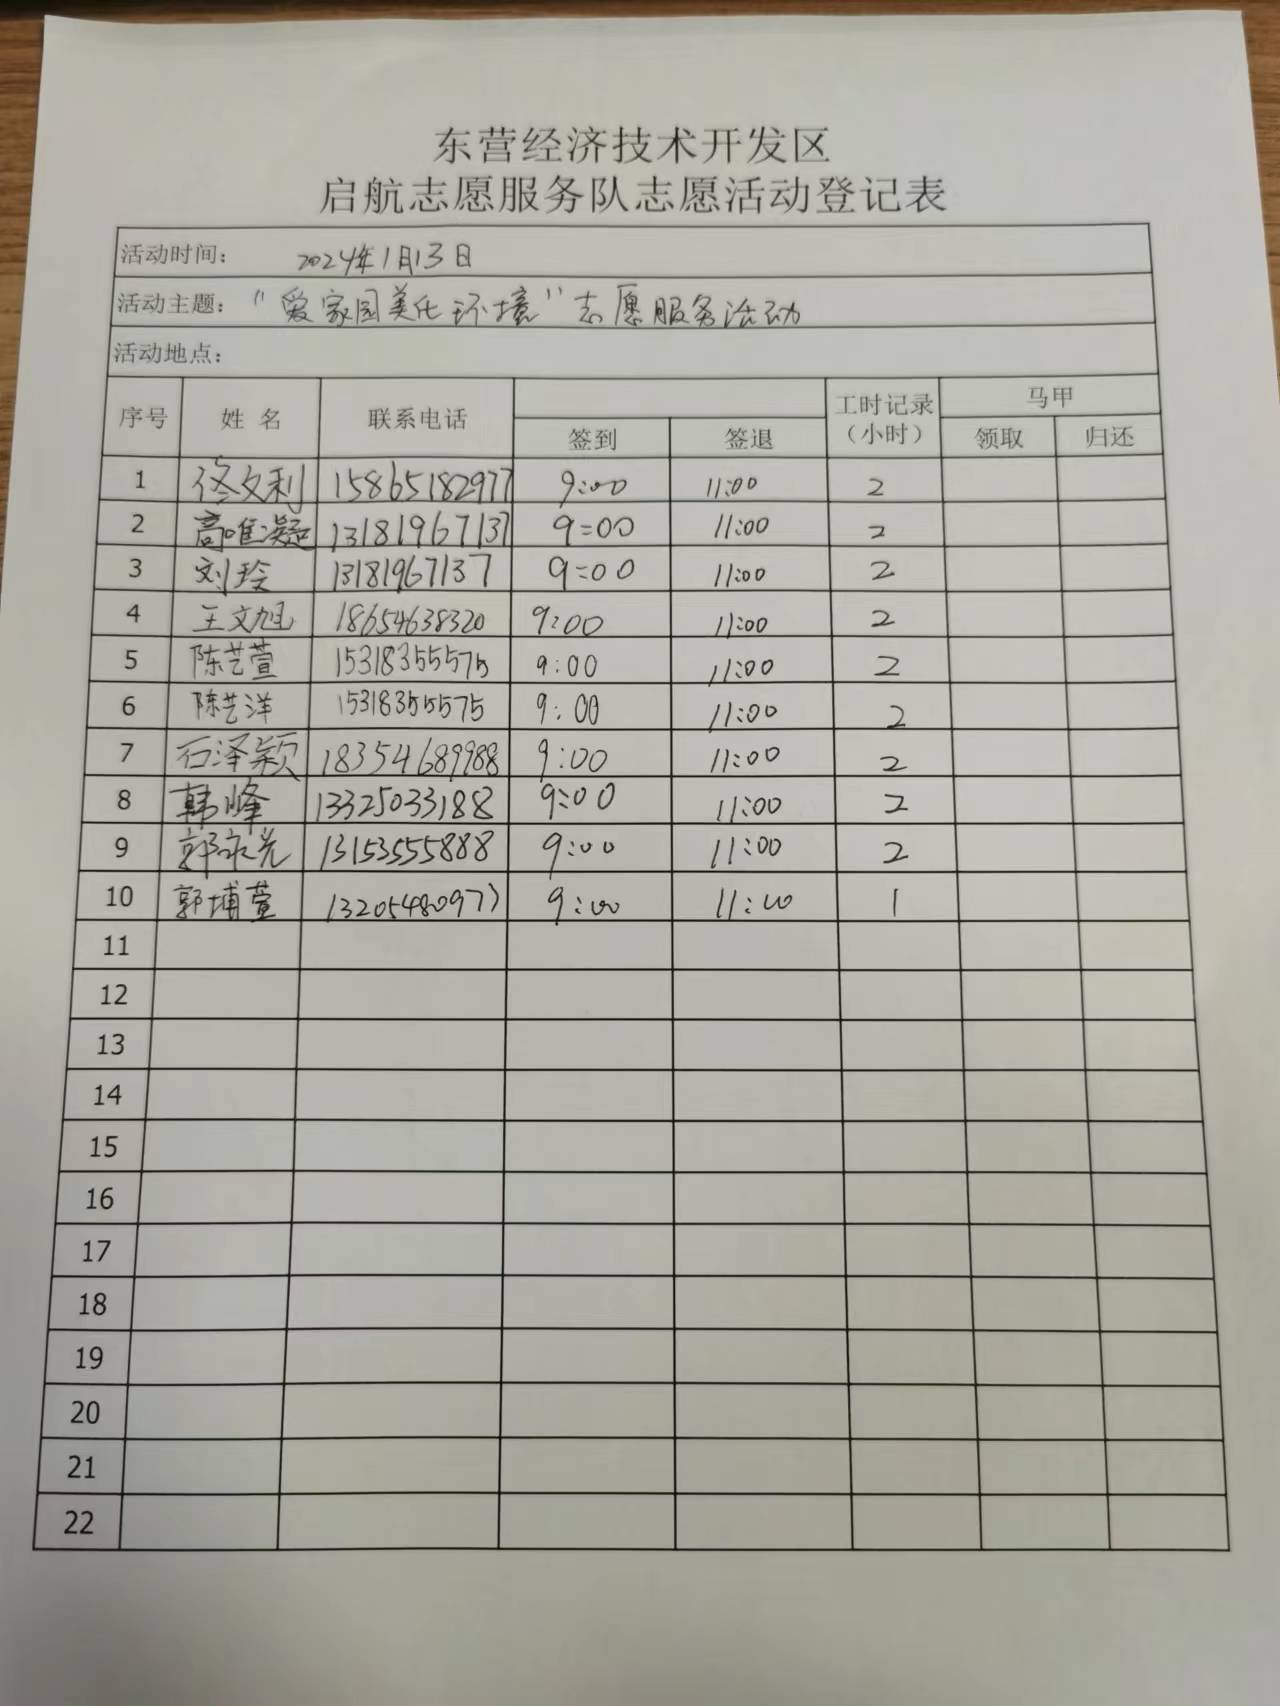 东营经济技术开发区
启航志愿服务队志愿活动登记表
活动时间： 2024年1月13日
活动主题："爱家园美化环境"志愿服务活动
活动地点：
序号 姓 名 联系电话 签到 签退 工时记录（小时） 马甲 领取 归还
1 佟文利 15865182977 9:00 11:00 2
2 高唯凝 13181967137 9:00 11:00 2
3 刘玲 13181967137 9:00 11:00 2
4 王文旭 18654638320 9:00 11:00 2
5 陈艺萱 15318355575 9:00 11:00 2
6 陈艺洋 15318355575 9:00 11:00 2
7 石泽颖 18354689988 9:00 11:00 2
8 韩峰 13325033188 9:00 11:00 2
9 郭 13153555888 9:00 11:00 2
10 郭埔萱 13205480977 9:00 11:00 1
11
12
13
14
15
16
17
18
19
20
21
22